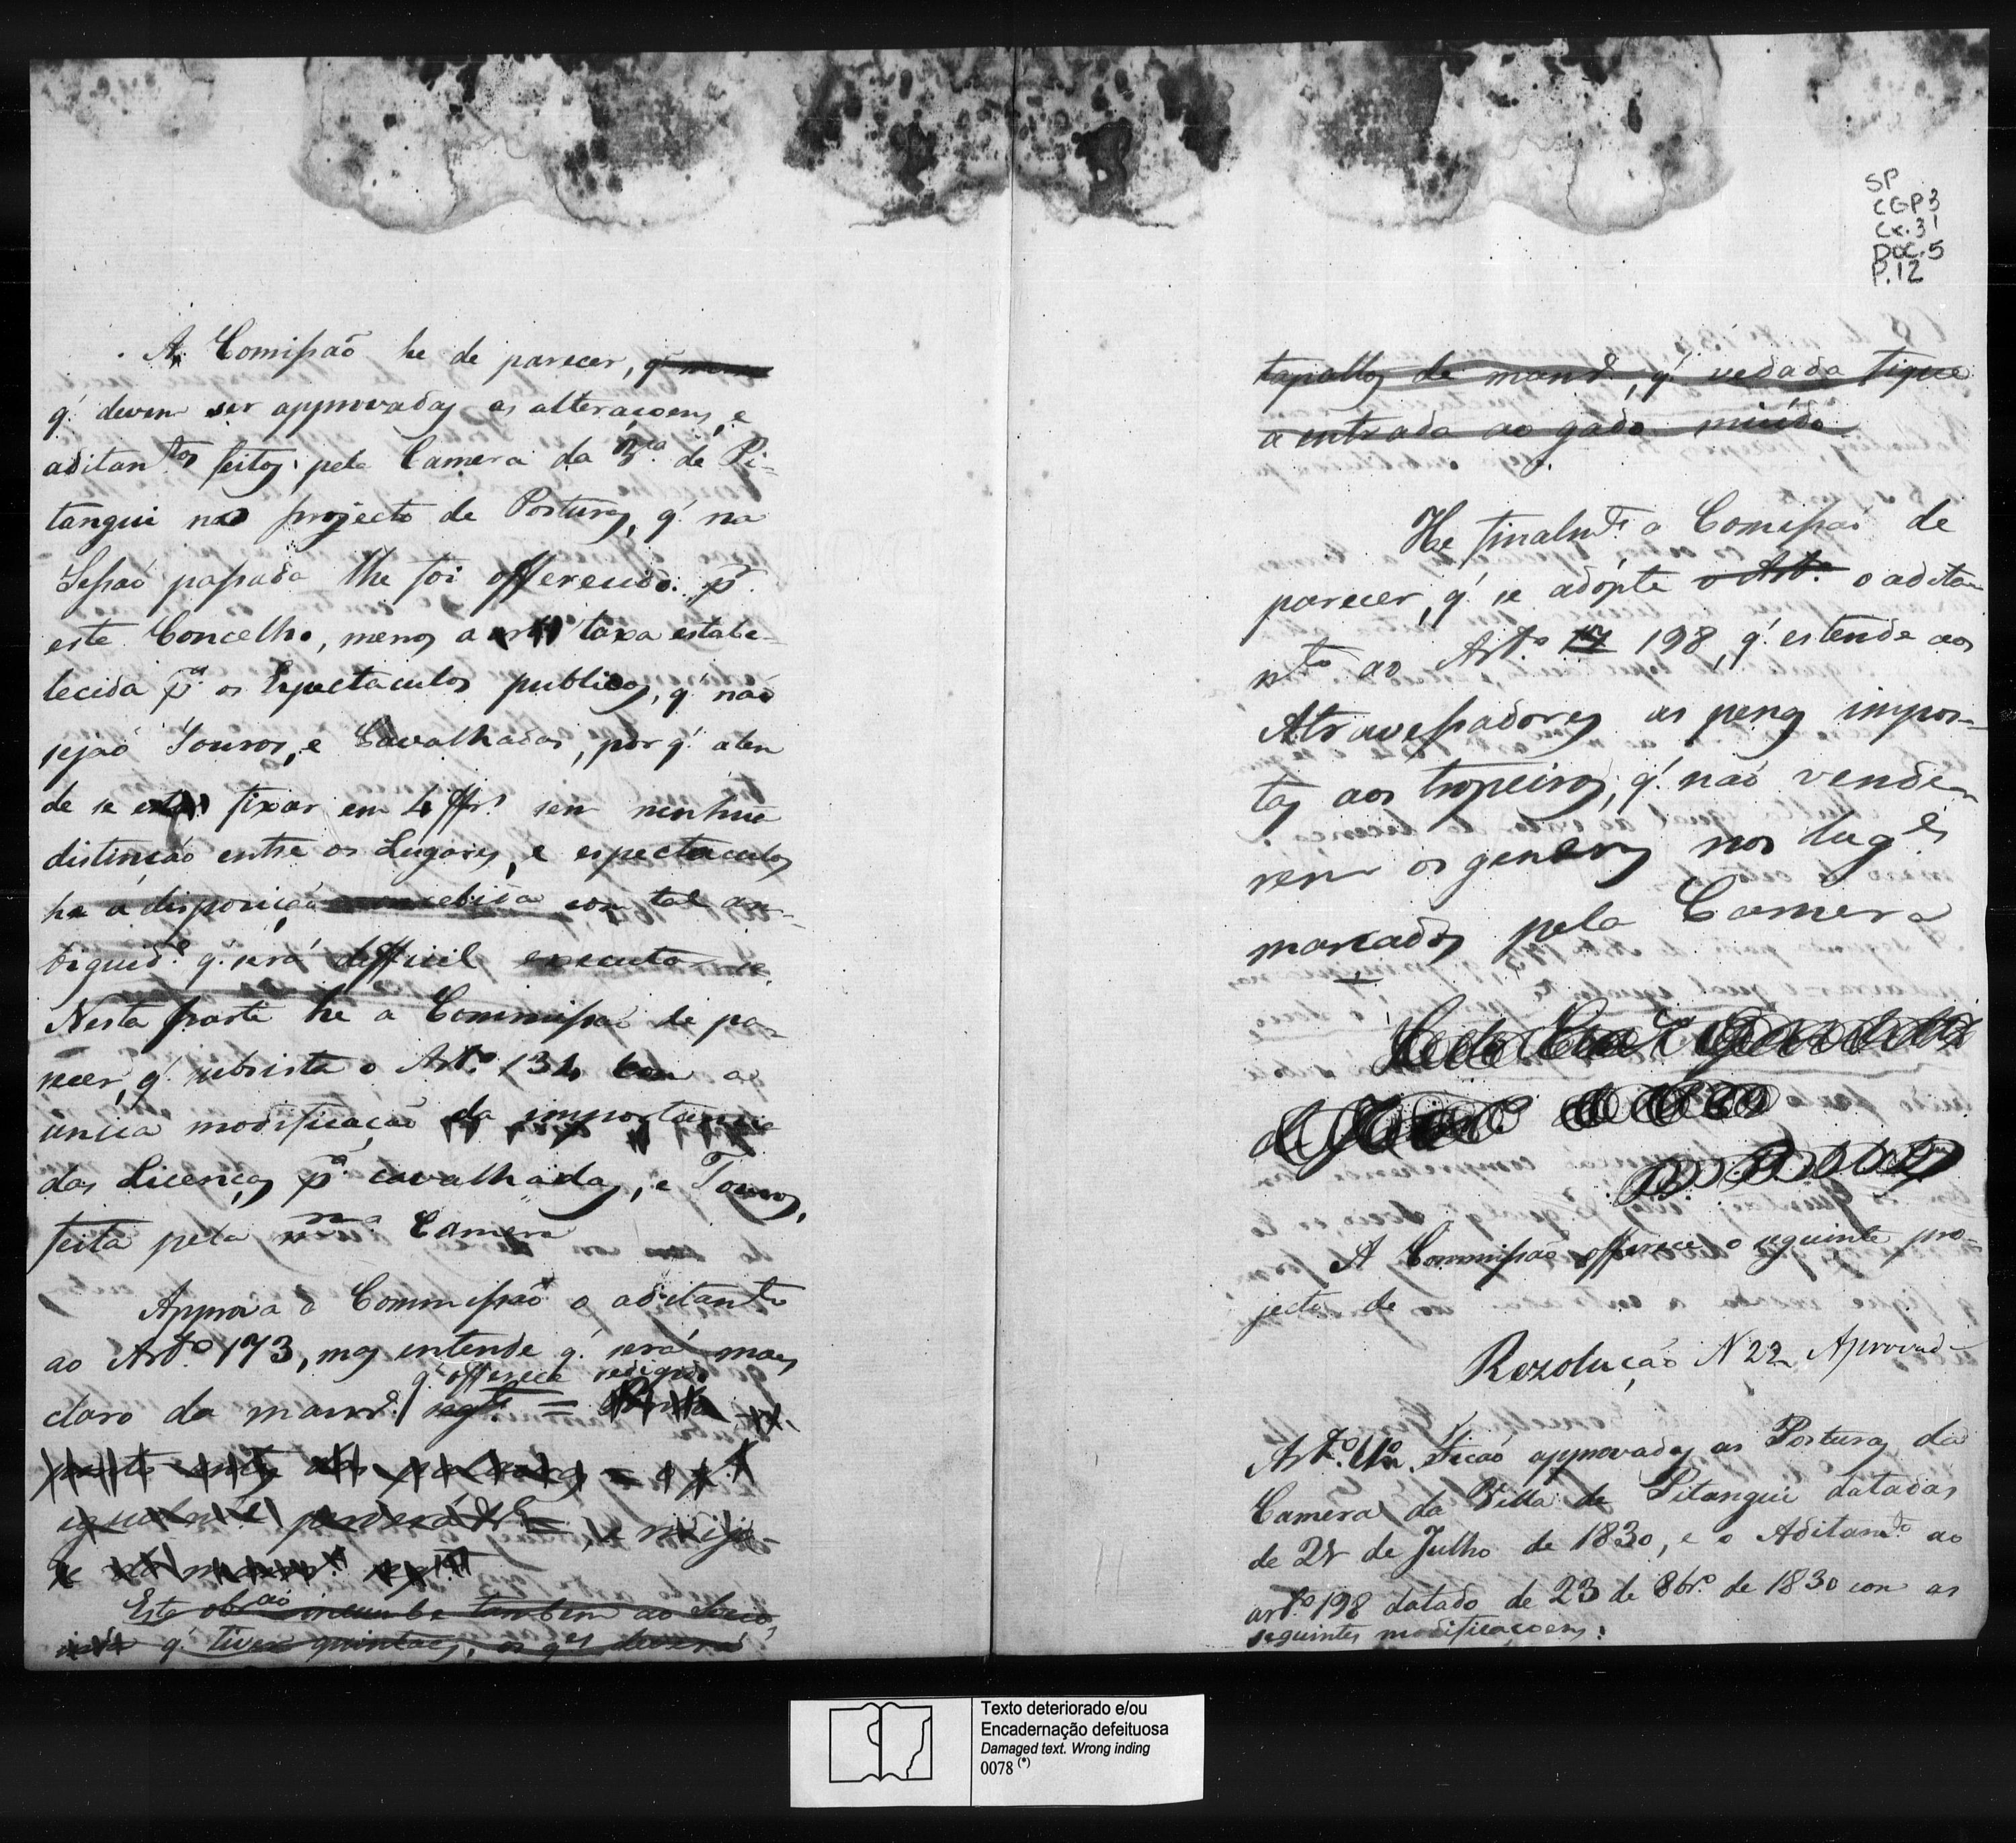 SP
CGP3
Cx.31
DOC.5
P.12
A Comissaõ he de parecer, q'
q' devem ser approvadas as alteraçoens, e
aditan.tos feitos pela Camera da V.ª de Pi-
tangui no projecto de Posturas, q' na
Sessaõ passada lhe foi offerecido p.r
este Concelho, menos a taxa estabe-
lecida p.ª os Espectaculos publicos, q' naõ
sejaõ Touros, e Cavalhadas, por q' alem
de se fixar em 4$ rs. sem nenhuã
distinçaõ entre os Lugares, e espectaculos
he a disposiçaõ concebida com tal am-
biguid.e q' será difficil executar-se.
Nesta parte he a Commissaõ de pa-
recer, q' subsista o Art.º 134 com a
unica modificaçaõ da importancia
das Licenças p.ª cavalhadas, e Touros,
feita pela m.ma Camera
Approva a Commissaõ o aditan.to
ao Art.º 173, mas entende q' será mais
q' offerece redigido
claro da maneir.ª seg.te =
Esta ob.aõ incumbe tambem ao Socio,
q' tiver quintaes, os q.es deverá
tapallos de man.ª, q' vedada fique
a entrada ao gado miúdo.
He finalm.te a Comissaõ de
parecer, q' se adópte o Art.º o adita-
m.to ao Art.º 17 198, q' estende aos
Atravessadores as penas impos-
tas aos tropeiros, q' naõ vende-
rem os generos nos lug.es
marcados pela Camera
A Commissaõ offerece o seguinte pro-
jecto de
Rezoluçaõ N 22 Aprovad
Art.º 1º. Ficaõ approvadas as Posturas da
Camera da Villa de Pitangui datadas
de 28 de Julho de 1830, e o Aditam.to ao
art.º 198 datado de 23 de 8br.º de 1830 com as
seguintes modificaçoens:
Texto deteriorado e/ou
Encadernação defeituosa
Damaged text. Wrong inding
0078 (*)